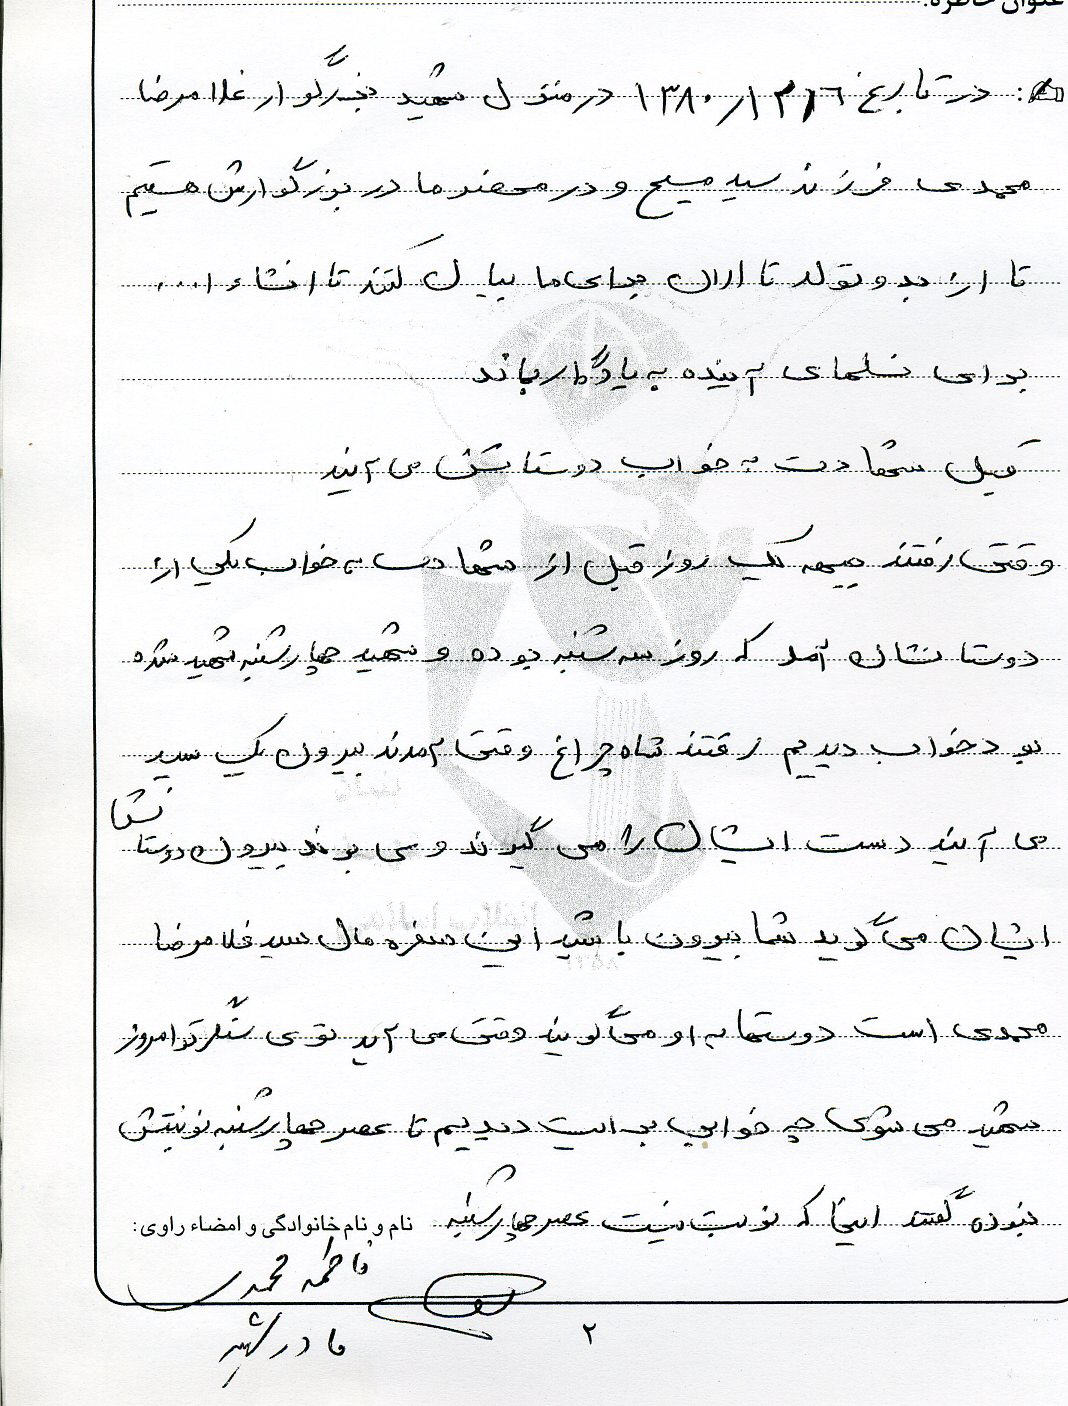 عنوان خاطره:
در تاریخ ۱۳۸۰/۱۲/۱۶ در منزل شهید بزرگوار غلامرضا
محمدی فرزند سید مسیح و در محضر مادر بزرگوارش هستیم
تا از بدو تولد تا الان برای ما بیان کنند تا انشاء ا...
برای نسلهای آینده به یادگار بماند
قبل شهادت به خواب دوستانش می آیند
وقتی رفتند جبهه یک روز قبل از شهادت به خواب یکی از
دوستانشان آمد که روز سه شنبه بوده و شهید چهارشنبه شهید شده
بود خواب دیدیم رفتند شاه چراغ وقتی آمدند بیرون یک سید
می آیند دست ایشان را می گیرند و می برند بیرون دوستا نشا
ایشان می گوید شما بیرون باشید این سفره مال سید غلامرضا
محمدی است دوستها به او می گویند وقتی می آید توی سنگر تو امروز
شهید می شوی چه خوابی برایت دیدیم تا عصر چهارشنبه نوبتش
نبوده گفتند اینجا که نوبت نیست عصر چهارشنبه
نام و نام خانوادگی و امضاء راوی:
فاطمه محمدی
مادر شهید
۲